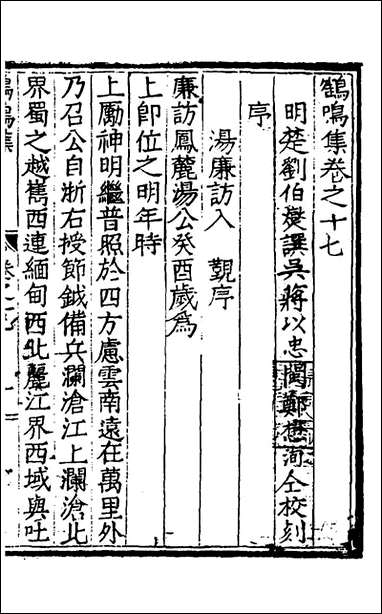 鶴鳴集卷之十七
明楚劉伯燮譔吳蔣以忠閩鄭懋洵仝校刻
序
湯廉訪入　覲序
廉訪鳳麓湯公癸酉歲爲
上即位之明年時
上勵神明繼普照於四方慮雲南遠在萬里外
乃召公自浙右授節鉞備兵瀾滄江上瀾滄北
界蜀之越嶲西連緬甸西北麗江界西域與吐